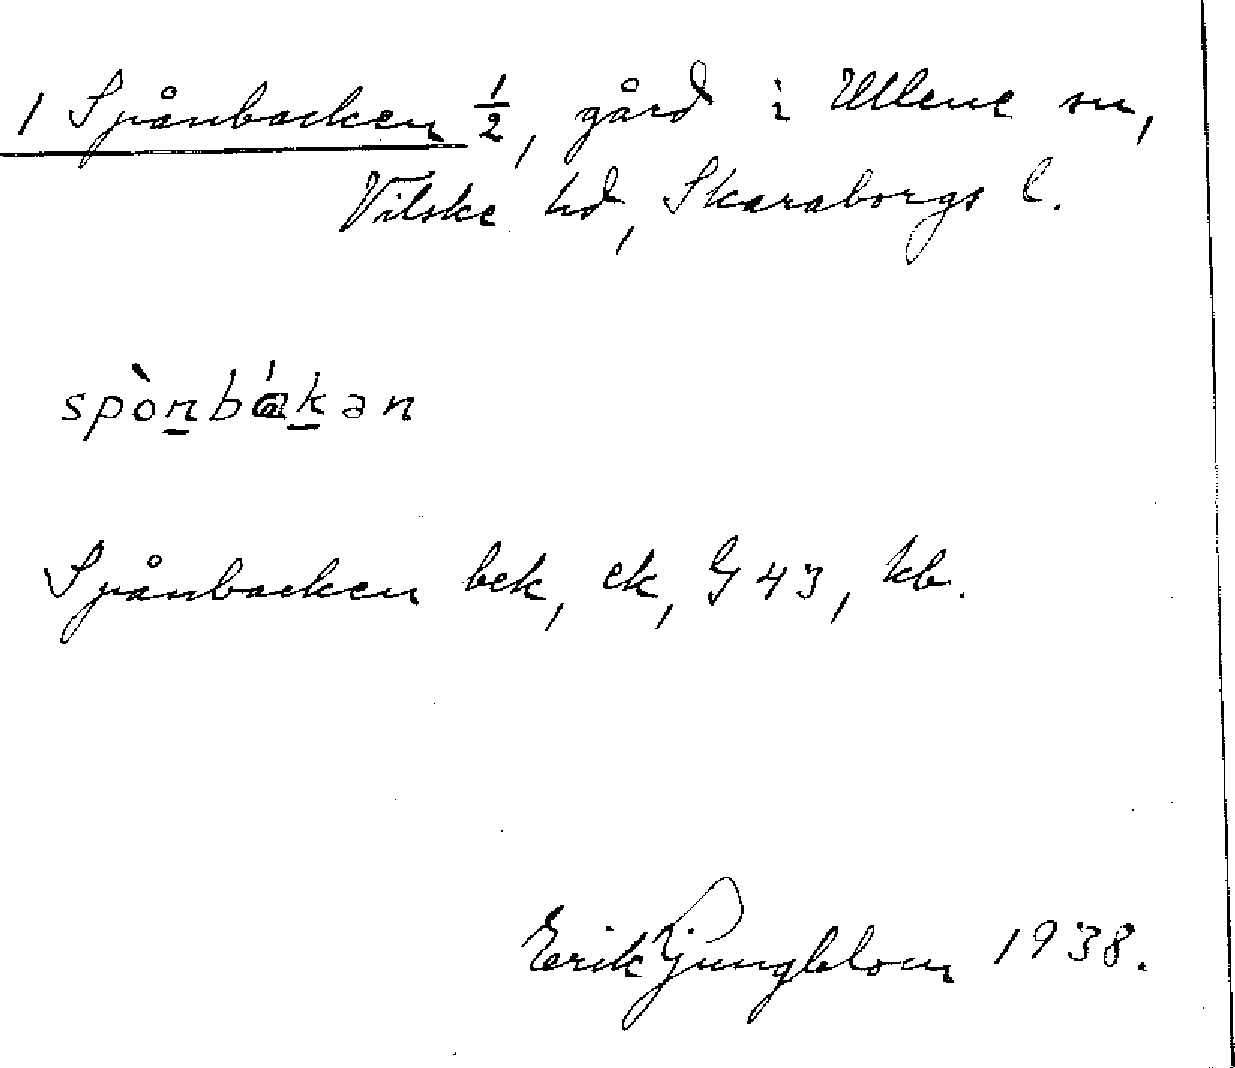 1 Spånbacken ½, gård i Ullene sn,
Vilske hd, Skaraborgs l.
spòn̲bák̲ən
Spånbacken bek, ek, G 43, kb.
Erik Ljungblom 1938.